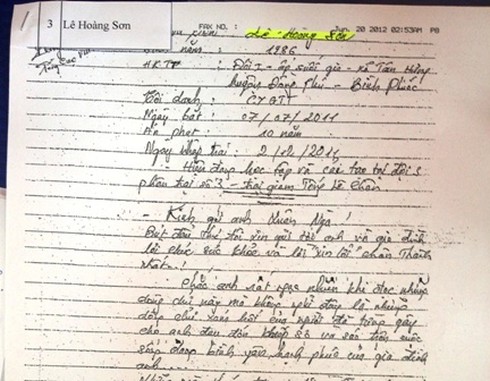 3 Lê Hoàng Sơn
FAX NO. : Jun. 20 2012 02:53AM P8
Lê Hoàng Sơn
năm : 1986
HKTT : Đội I - ấp suối - xã Tân Hưng
huyện Đồng Phú - Bình Phước
Tội danh : CYGTT
Ngày bắt : 07/07/2011
Án phạt : 10 năm
Ngày nhập trại : 2/12/2011
Hiện đang học tập và cải tạo tại đội 3
phân trại số 3 - trại giam Tống Lê Chân
- Kính gửi anh Xuân Nga !
Bức đầu thư tôi xin gửi tới anh và gia đình
lời chúc sức khỏe và lời "xin lỗi" chân thành
nhất..!
Chắc anh rất ngạc nhiên khi đọc những
dòng chữ này mà không nghĩ đây là những
dòng chữ của người đã từng gây
cho anh đau đớn và xáo trộn cuộc
sống đang bình yên hạnh phúc của gia đình
anh